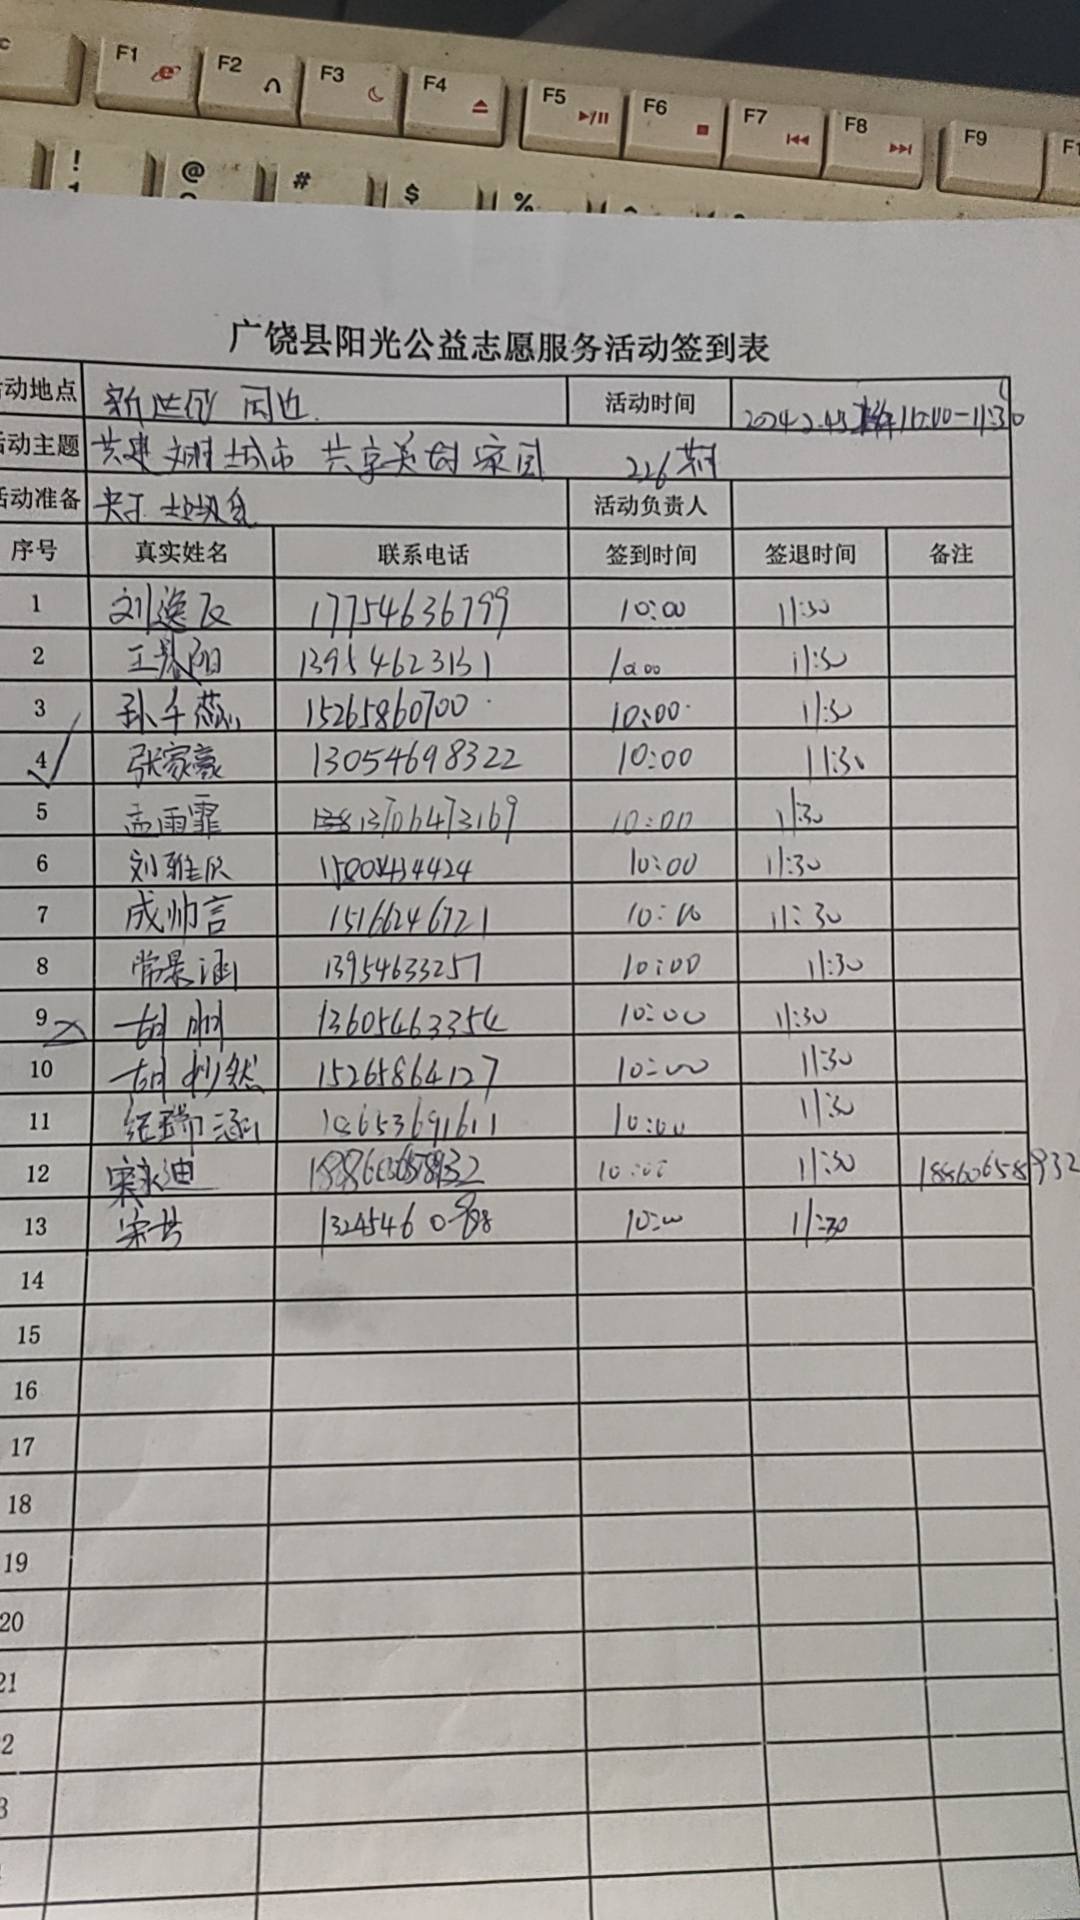 c F1 F2 F3 F4 F5 F6 F7 F8 F9 F1
! @ # $ %
广饶县阳光公益志愿服务活动签到表
活动地点 新世纪 周边 活动时间 11:30
活动主题 共建文明城市 共享美好家园 226期
活动准备 夹子 垃圾袋 活动负责人
序号 真实姓名 联系电话 签到时间 签退时间 备注
1 刘逸辰 17754636799 10:00 11:30
2 13954623151 10:00 11:30
3 孙千蕊 15265860700 10:00 11:30
4 张家豪 13054698322 10:00 11:30
5 孟雨霏 13706473169 10:00 11:30
6 刘雅欣 10:00 11:30
7 成帅言 15166246721 10:00 11:30
8 常景涵 13954633257 10:00 11:30
9 13605463354 10:00 11:30
10 15265864127 10:00 11:30
11 10:00 11:30
12 10:00 11:30 18860658932
13 10:00 11:30
14
15
16
17
18
19
20
21
2
3